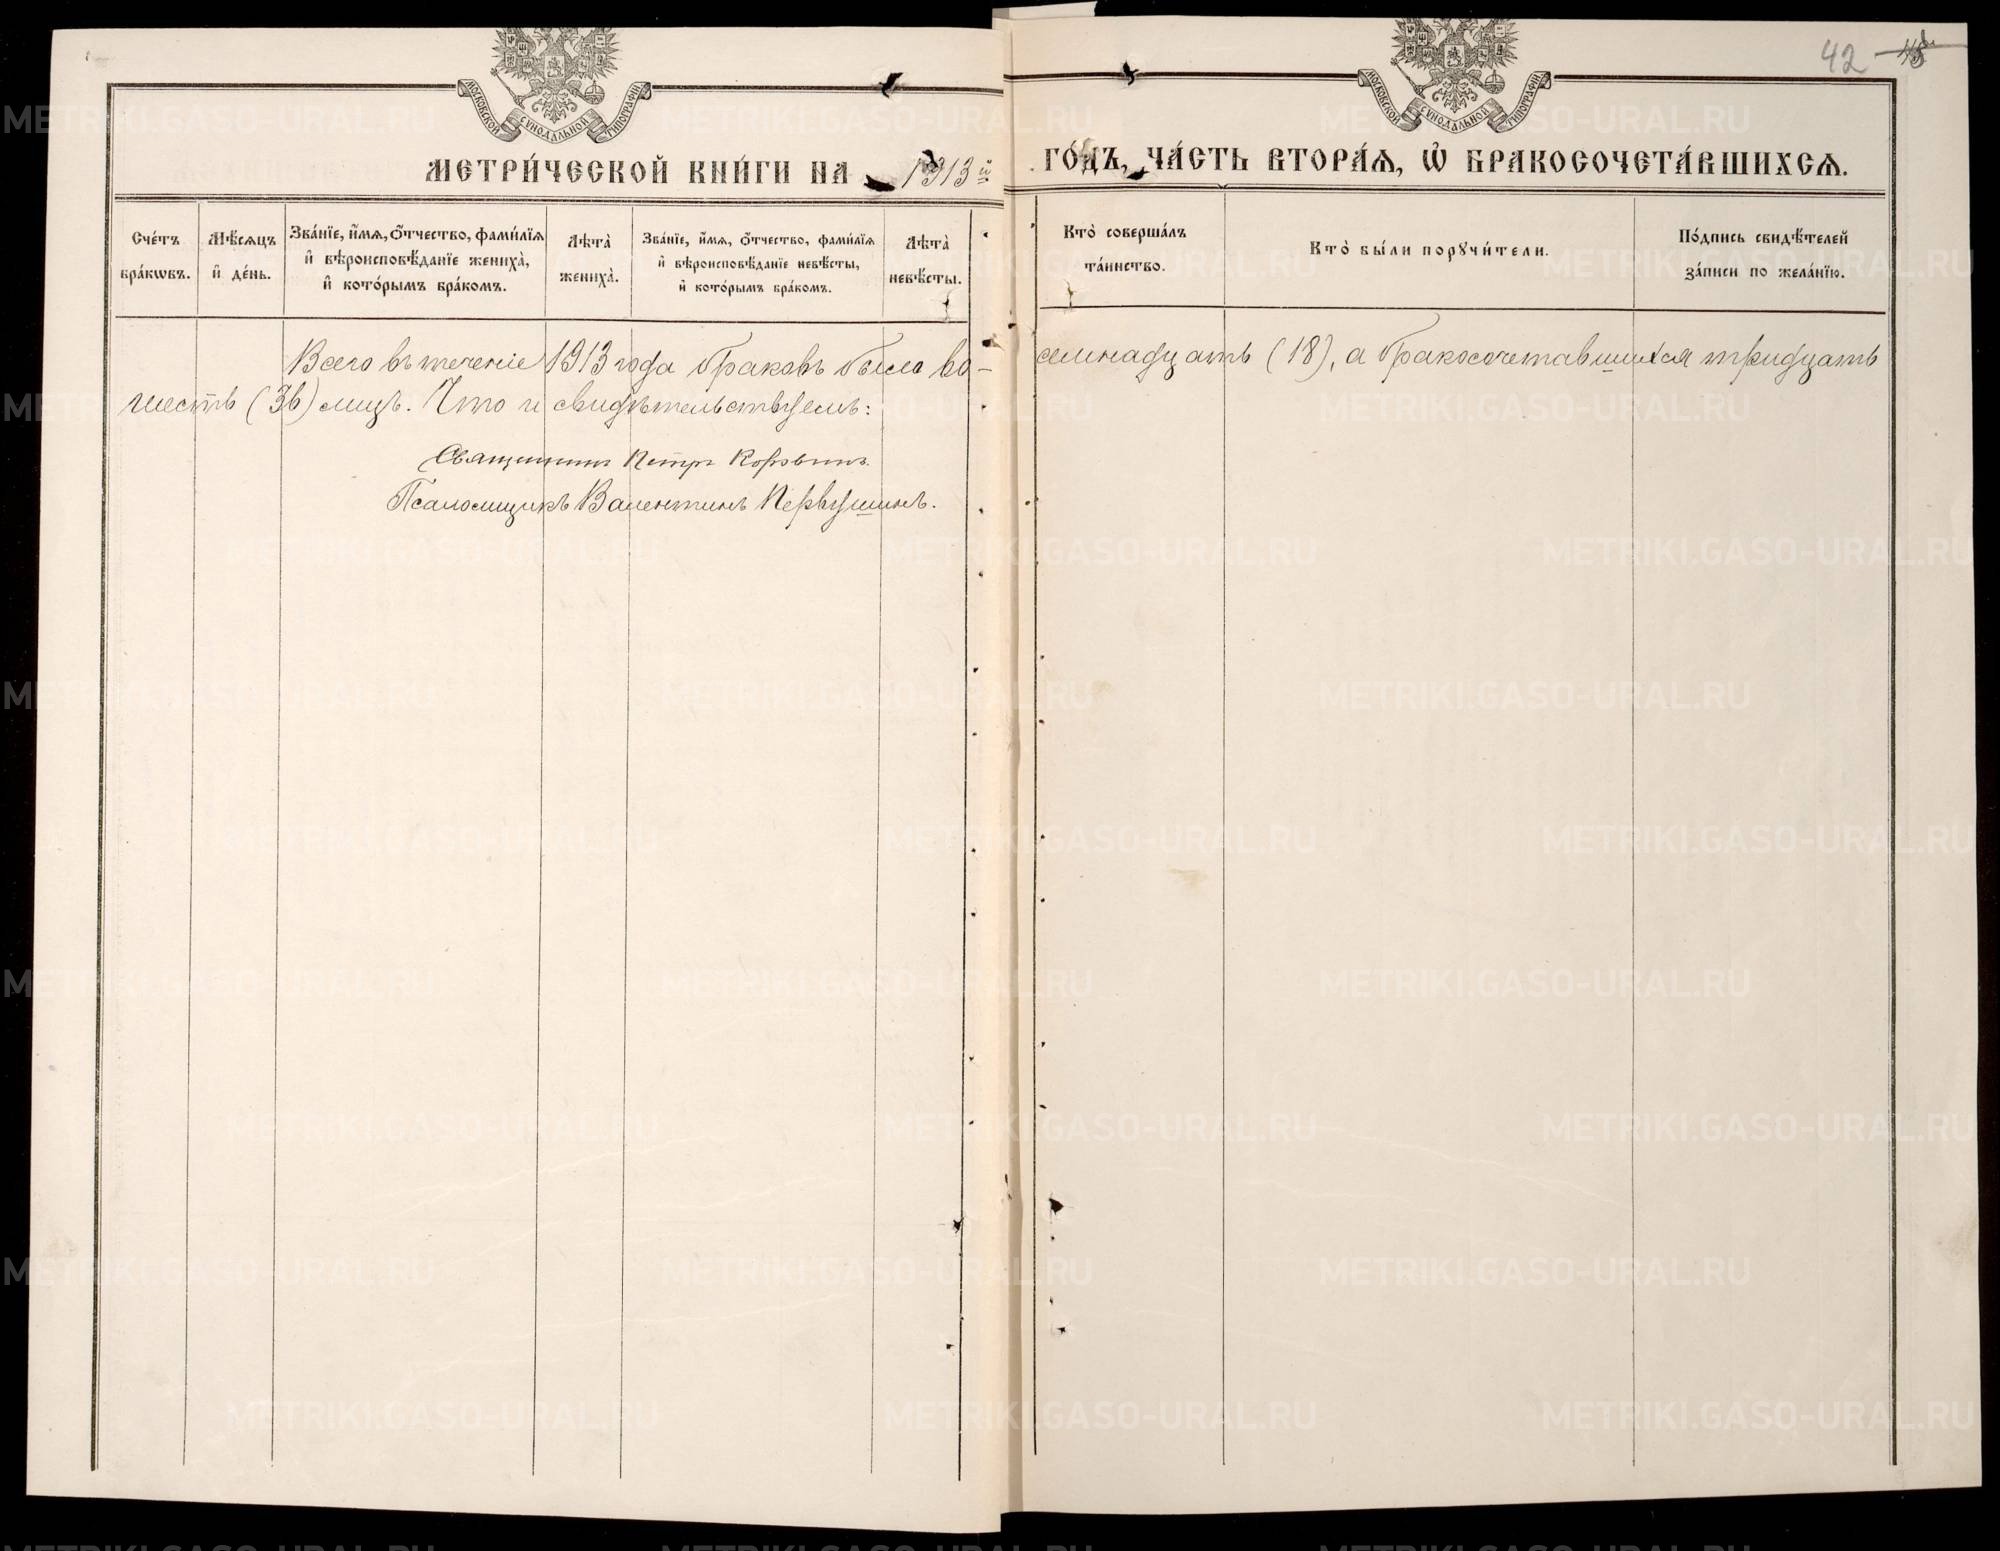 МОСКОВСКОЙ СУНОДАЛЬНОЙ ТИПОГРАФІИ
МОСКОВСКОЙ СУНОДАЛЬНОЙ ТИПОГРАФІИ
42
МЕТРИ́ЧЕСКОЙ КНИ́ГИ НА 1913й ГО́ДЪ, ЧА́СТЬ ВТОРА́Ѧ, Ѽ БРАКОСОЧЕТА́ВШИХСѦ.
Сче́тъ
бра́кѡвъ.
Мѣ́сѧцъ
и҆ де́нь.
Зва́нїе, и҆́мѧ, ѻ҆́тчество, фами́лїѧ
и҆ вѣроисповѣ́данїе жениха̀,
и҆ кото́рымъ бра́комъ.
Лѣта̀
жениха̀.
Зва́нїе, и҆́мѧ, ѻ҆́тчество, фами́лїѧ
и҆ вѣроисповѣ́данїе невѣ́сты,
и҆ кото́рымъ бра́комъ.
Лѣта̀
невѣ́сты.
Кто̀ соверша́лъ
та́инство.
Кто̀ бы́ли порꙋчи́тели.
По́дпись свидѣ́телей
за́писи по жела́нїю.
Всего въ теченіе 1913 года браковъ было во-
семнадцать (18), а бракосочетавшихся тридцать
шесть (36) лицъ. Что и свидѣтельствуемъ:
Священникъ Петръ Коровинъ.
Псаломщикъ Валентинъ Первушинъ.
METRIKI.GASO-URAL.RU